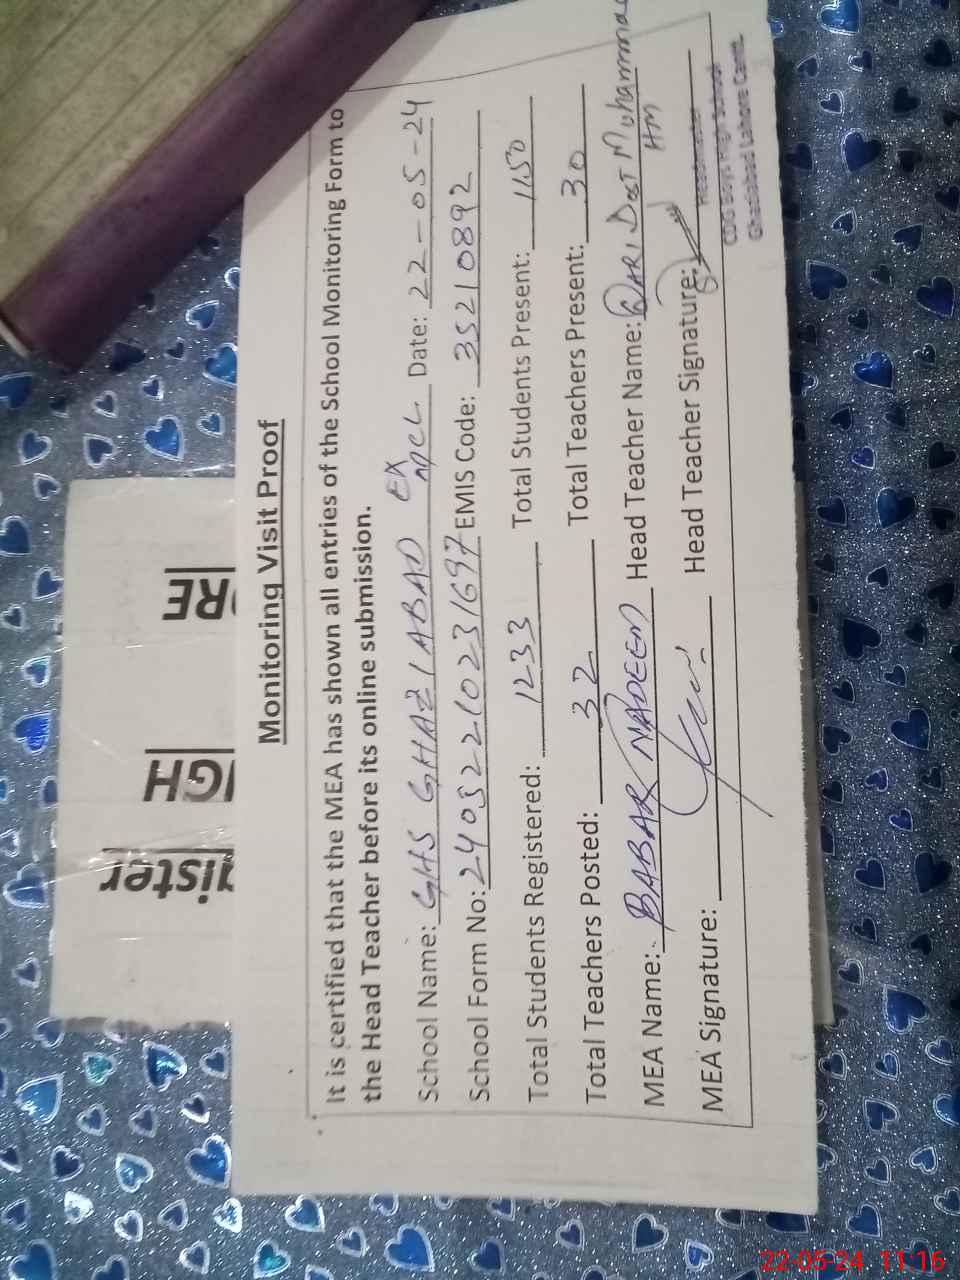 Monitoring Visit Proof
It is certified that the MEA has shown all entries of the School Monitoring Form to
the Head Teacher before its online submission.
School Name: GHS GHAZIABAD EX MCL Date: 22-05-24
School Form No: 24052210231697 EMIS Code: 35210892
Total Students Registered: 1233 Total Students Present: 1150
Total Teachers Posted: 32 Total Teachers Present: 30
MEA Name: BABAR NADEEM Head Teacher Name: QARI DOST Muhammad
HM
MEA Signature: Head Teacher Signature:
Headmaster
CDG Boys High School
Ghaziabad Lahore Cantt.
RE
IGH
ister
22-05-24 11:16